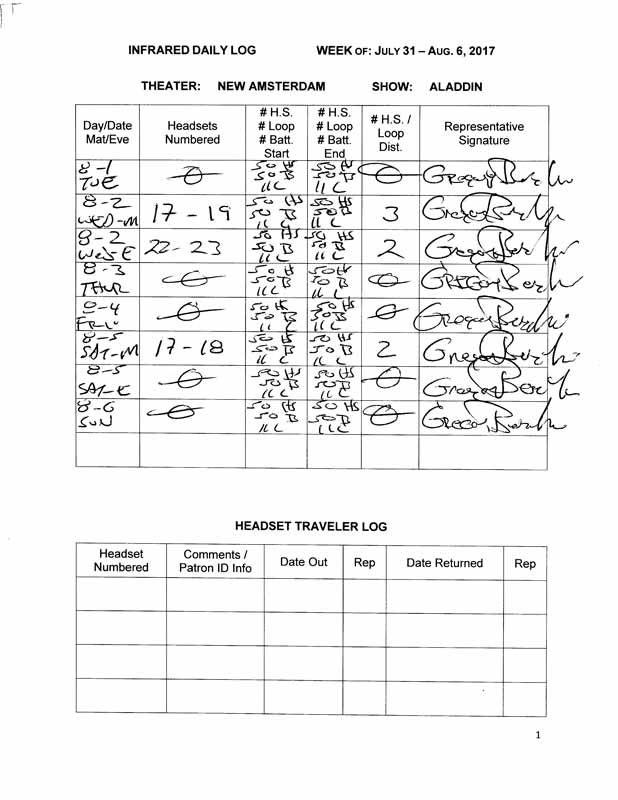 INFRARED DAILY LOG WEEK OF: JULY 31 – AUG. 6, 2017
THEATER: NEW AMSTERDAM SHOW: ALADDIN
Day/Date Mat/Eve
Headsets Numbered
# H.S. # Loop # Batt. Start
# H.S. # Loop # Batt. End
# H.S. / Loop Dist.
Representative Signature
8-1 TUE
50 H
50 B
11 C
50 HS
50 B
11 C
8-2 WED-M
17 - 19
50 HS
50 B
11 C
50 HS
50 B
11 C
3
8-2 WED E
22 - 23
50 HS
50 B
11 C
50 HS
50 B
11 C
2
8-3 THUR
50 H
50 B
11 C
50 H
50 B
11 C
8-4 FRI
50 H
50 B
11 C
50 HS
50 B
11 C
8-5 SAT-M
17 - 18
50 HS
50 B
11 C
50 HS
50 B
11 C
2
8-5 SAT-E
50 HS
50 B
11 C
50 HS
50 B
11 C
8-6 SUN
50 HS
50 B
11 C
50 HS
50 B
11 C
HEADSET TRAVELER LOG
Headset Numbered
Comments / Patron ID Info
Date Out
Rep
Date Returned
Rep
1